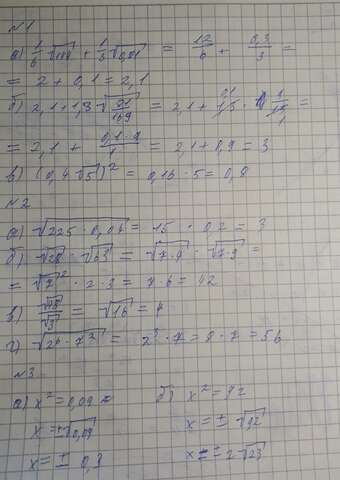 №1
а) 1/6 √144 + 1/3 √0,01 = 12/6 + 0,3/3 =
= 2 + 0,1 = 2,1
б) 2,1 + 1,3 √(81/169) = 2,1 +
= 2,1 + (0,1 · 9)/1 = 2,1 + 0,9 = 3
в) (0,4 √5)² = 0,16 · 5 = 0,8
№2
а) √(225 · 0,04) = 15 · 0,2 = 3
б) √28 · √63 = √(7·4) · √(7·9) =
= √7² · 2 · 3 = 7 · 6 = 42
в) √48/√3 = √16 = 4
г) √(2⁶ · 7²) = 2³ · 7 = 8 · 7 = 56
№3
а) x² = 0,09 б) x² = 92
x = ±√0,09 x = ± √92
x = ± 0,3 x = ± 2√23